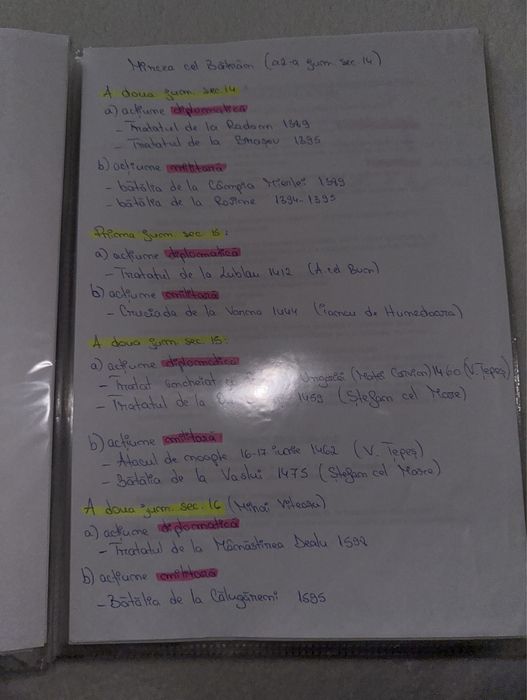 Mircea cel Bătrân (a2-a jum. sec 14)
A doua jum. sec. 14
a) acțiune diplomatică
- Tratatul de la Radom 1389
- Tratatul de la Brașov 1395
b) acțiune militară
- bătălia de la Câmpia Mierlei 1389
- bătălia de la Rovine 1394-1395
Prima jum. sec 15:
a) acțiune diplomatică
- Tratatul de la Lublau 1412 (A. cel Bun)
b) acțiune militară
- Cruciada de la Varna 1444 (Iancu de Hunedoara)
A doua jum. sec 15:
a) acțiune diplomatică
- Tratat încheiat Ungaria (Matei Corvin) 1460 (V. Țepeș)
- Tratatul de la 1459 (Ștefan cel Mare)
b) acțiune militară
- Atacul de noapte 16-17 iunie 1462 (V. Țepeș)
- Bătălia de la Vaslui 1475 (Ștefan cel Mare)
A doua jum. sec. 16 (Mihai Viteazu)
a) acțiune diplomatică
- Tratatul de la Mănăstirea Dealu 1598
b) acțiune militară
- Bătălia de la Călugăreni 1595